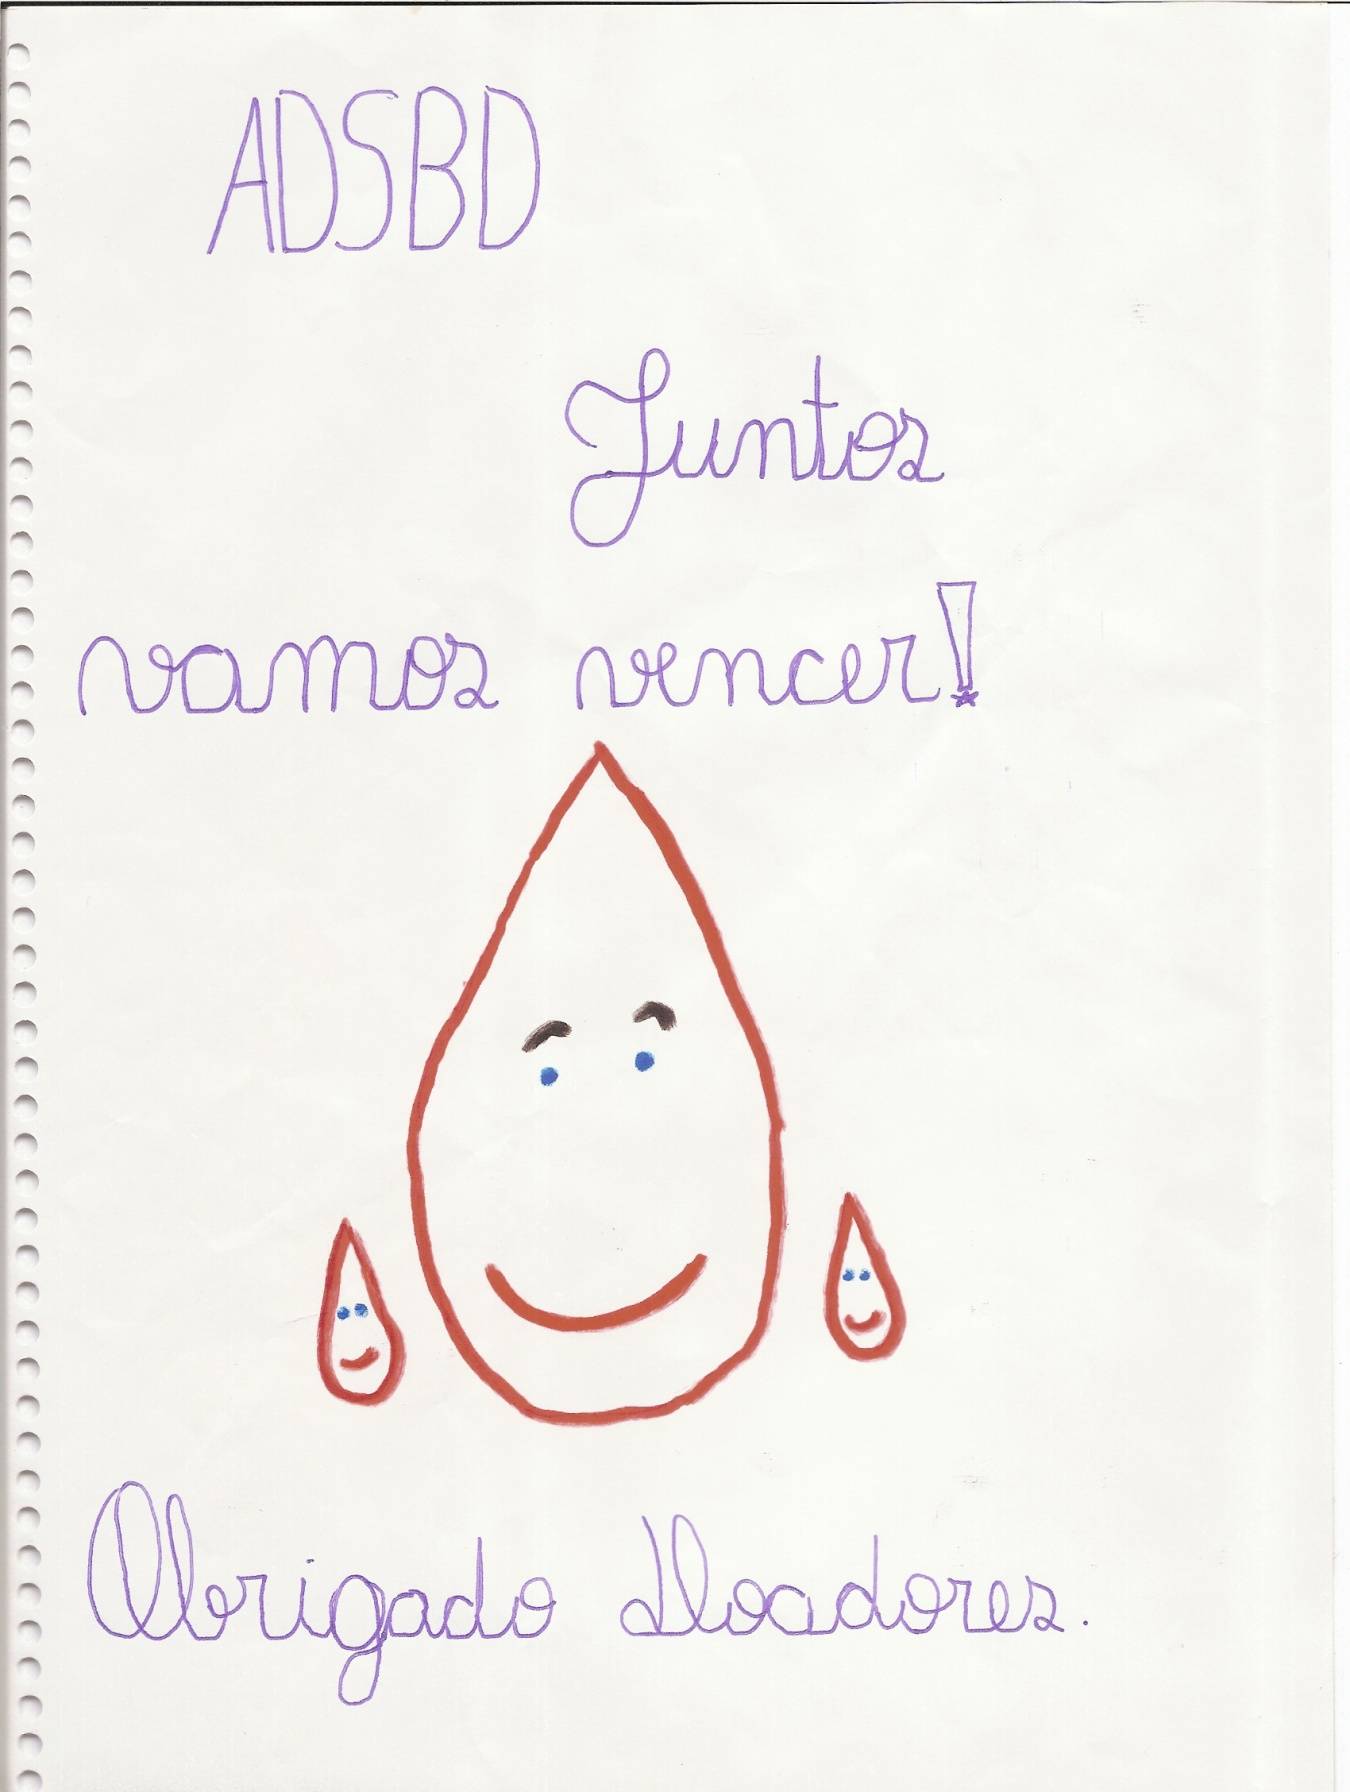 ADSBD
Juntos
vamos vencer!
Obrigado Doadores.